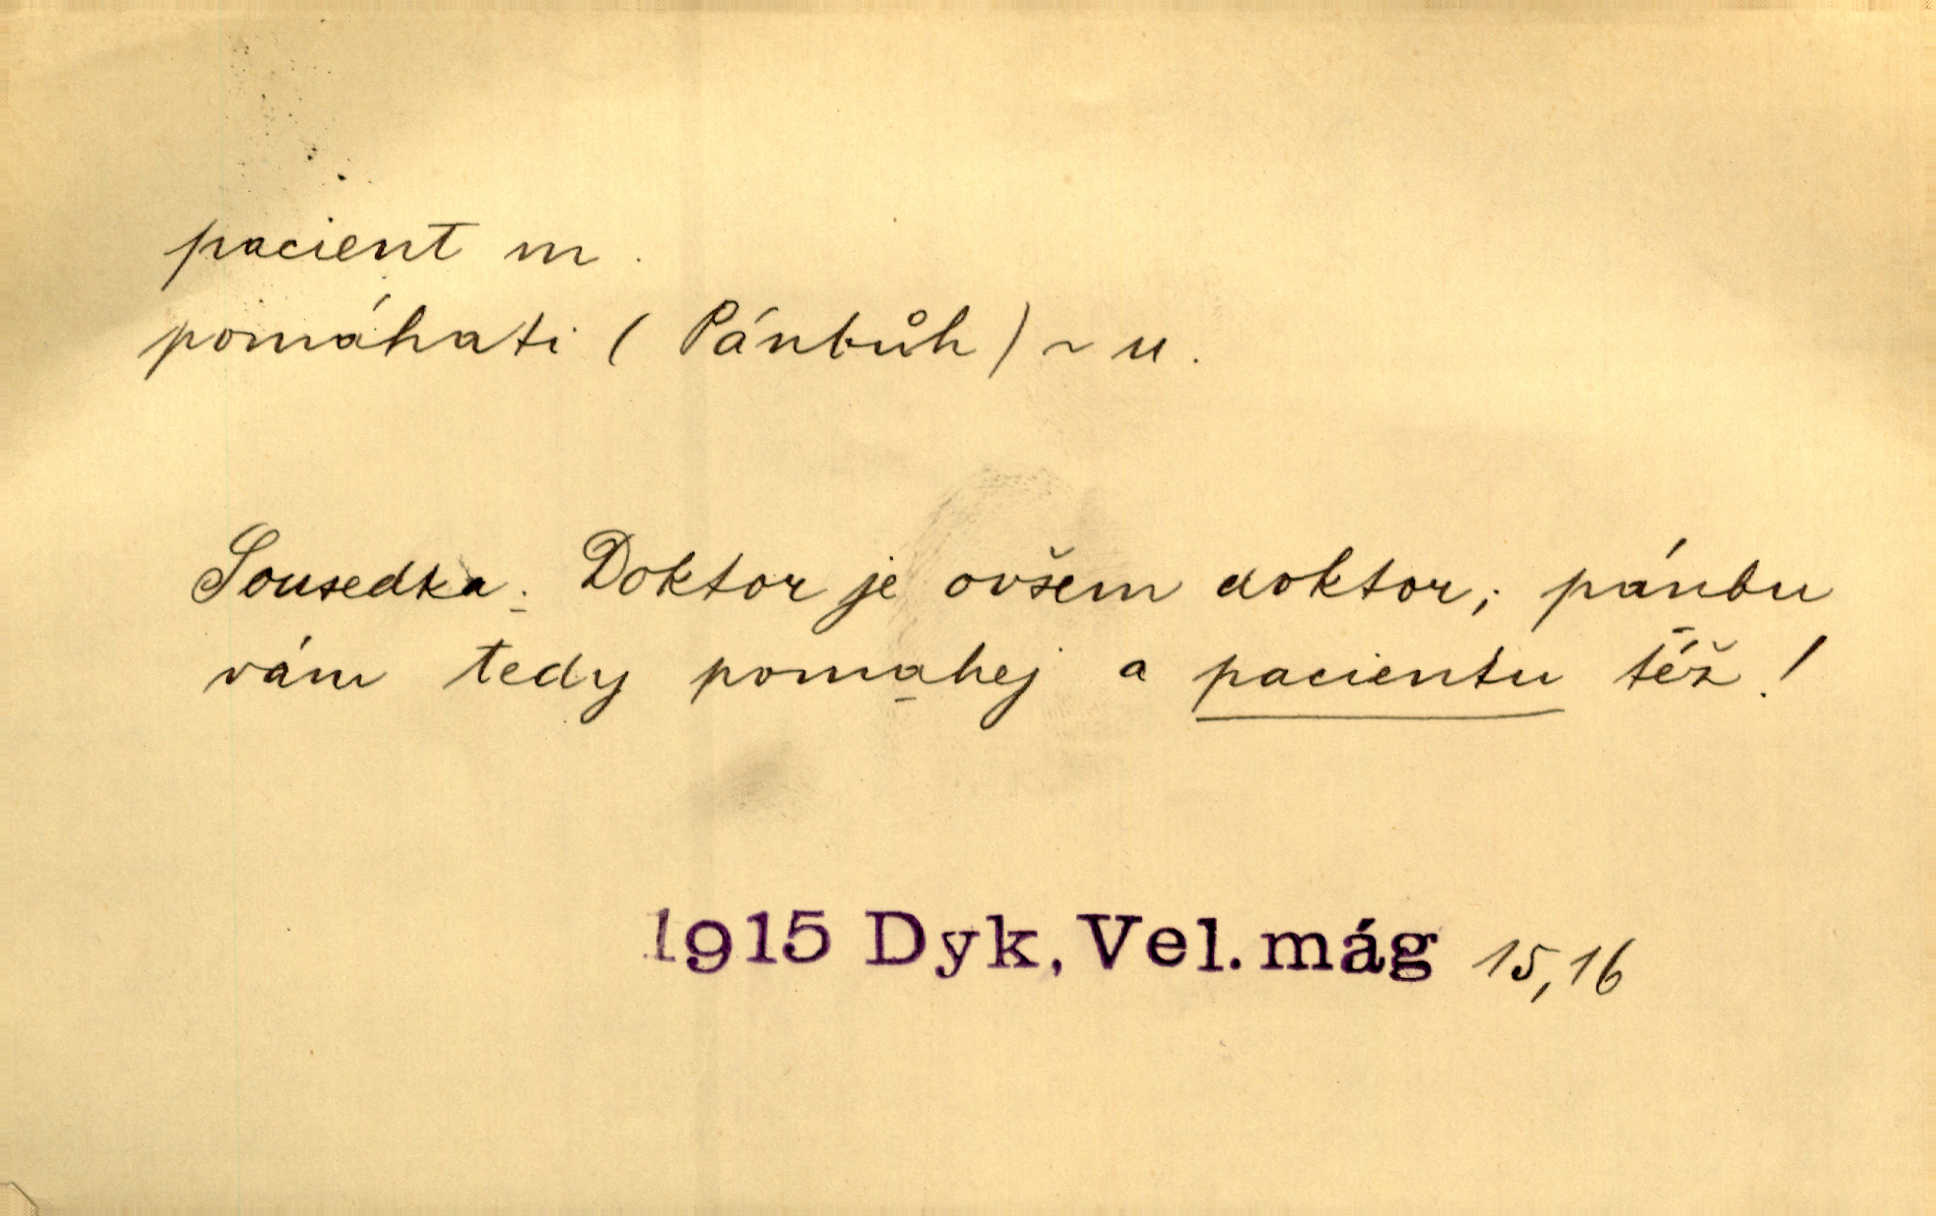 pacient m.
pomáhati (Pánbůh) ~ u.
Sousedka: Doktor je ovšem doktor; pánbu
vám tedy pomahej a pacientu též!
1915 Dyk, Vel. mág 15,16